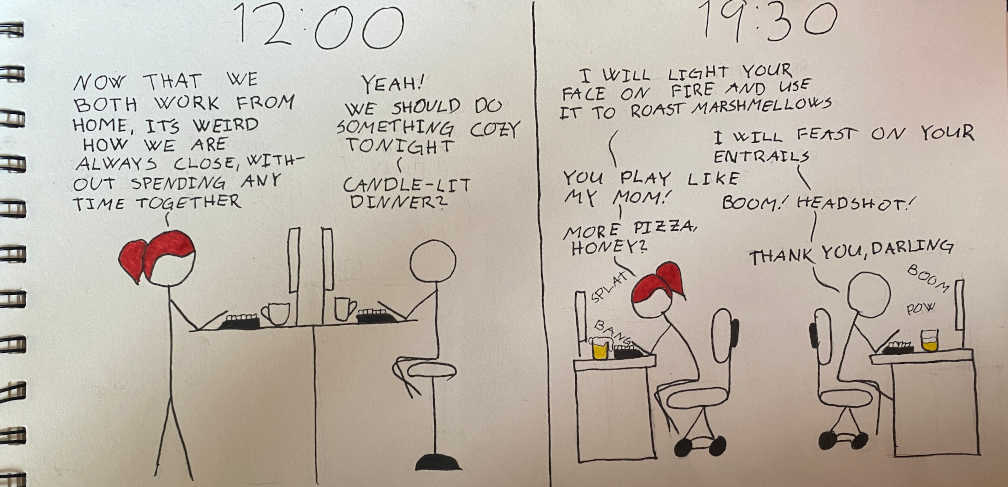 12:00
NOW THAT WE
BOTH WORK FROM
HOME, IT'S WEIRD
HOW WE ARE
ALWAYS CLOSE, WITH-
OUT SPENDING ANY
TIME TOGETHER
YEAH!
WE SHOULD DO
SOMETHING COZY
TONIGHT
CANDLE-LIT
DINNER?
19:30
I WILL LIGHT YOUR
FACE ON FIRE AND USE
IT TO ROAST MARSHMELLOWS
I WILL FEAST ON YOUR
ENTRAILS
YOU PLAY LIKE
MY MOM!
BOOM! HEADSHOT!
MORE PIZZA,
HONEY?
THANK YOU, DARLING
SPLAT
BANG
BOOM
POW